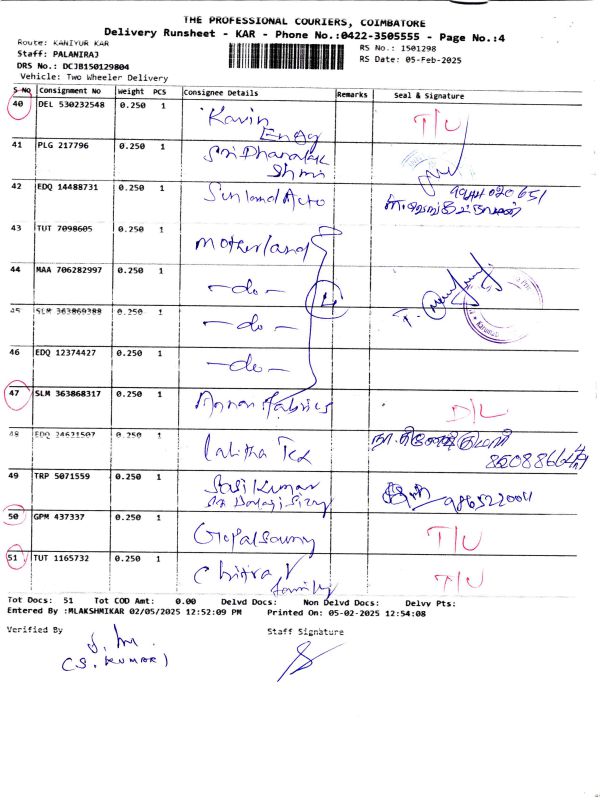 THE PROFESSIONAL COURIERS, COIMBATORE
Delivery Runsheet - KAR - Phone No.:0422-3505555 - Page No.:4
Route: KANIYUR KAR
RS No.: 1501298
Staff: PALANIRAJ
RS Date: 05-Feb-2025
DRS No.: DCJB150129804
Vehicle: Two Wheeler Delivery
S No Consignment No Weight PCS Consignee Details Remarks Seal & Signature
40 DEL 530232548 0.250 1 Kavin Engg T/U
41 PLG 217796 0.250 1 Sri Dhanalak
shmi
42 EDQ 14488731 0.250 1 Sunland Auto
43 TUT 7098605 0.250 1 Motherland
44 MAA 706282997 0.250 1 -do-
45 SLM 363869388 0.250 1 -do-
46 EDQ 12374427 0.250 1 -do-
47 SLM 363868317 0.250 1 Fabrics D/L
48 EDQ 24621507 0.250 1 Lalitha Tex
49 TRP 5071559 0.250 1 Sasi Kumar
50 GPM 437337 0.250 1 Gopalsamy T/U
51 TUT 1165732 0.250 1 Chitra
family T/U
Tot Docs: 51 Tot COD Amt: 0.00 Delvd Docs: Non Delvd Docs: Delvy Pts:
Entered By :MLAKSHMIKAR 02/05/2025 12:52:09 PM Printed On: 05-02-2025 12:54:08
Verified By Staff Signature
(S. KUMAR)